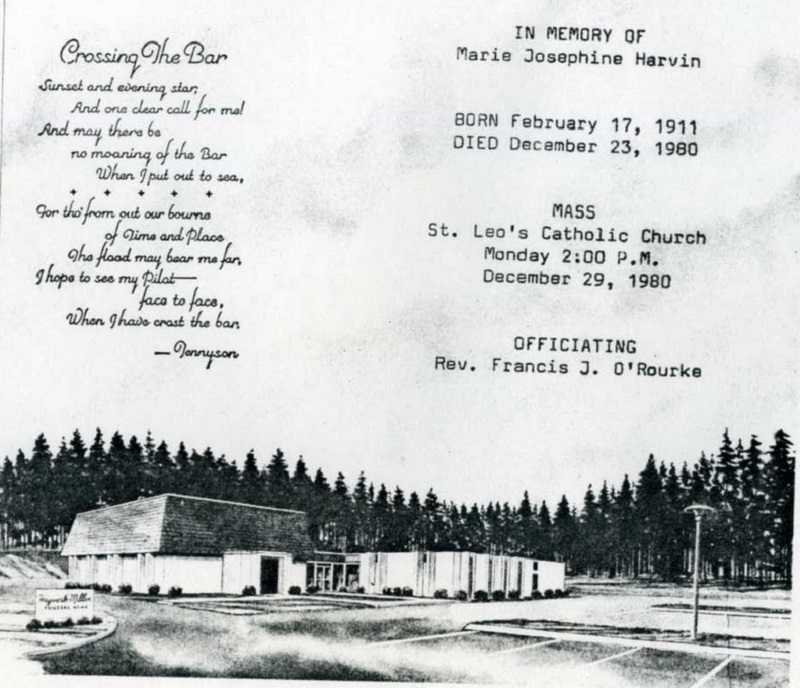 Crossing The Bar
Sunset and evening star,
And one clear call for me!
And may there be
no moaning of the Bar
When I put out to sea,
For tho' from out our bourne
of Time and Place
The flood may bear me far,
I hope to see my Pilot—
face to face,
When I have crost the bar.
— Tennyson
IN MEMORY OF
Marie Josephine Harvin
BORN February 17, 1911
DIED December 23, 1980
MASS
St. Leo's Catholic Church
Monday 2:00 P.M.
December 29, 1980
OFFICIATING
Rev. Francis J. O'Rourke
Miller
FUNERAL HOME